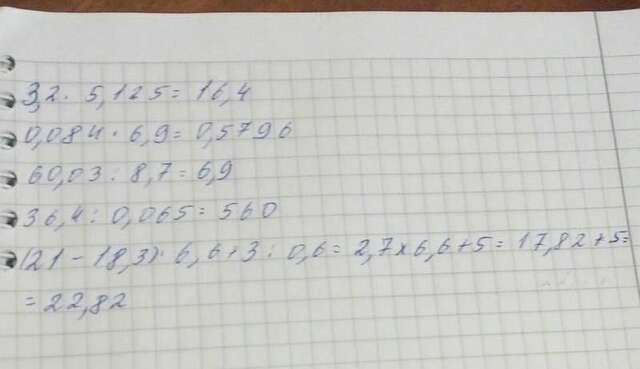 3,2 · 5,125 = 16,4
0,084 · 6,9 = 0,5796
60,03 : 8,7 = 6,9
36,4 : 0,065 = 560
(21 - 18,3) · 6,6 + 3 : 0,6 = 2,7 x 6,6 + 5 = 17,82 + 5 =
= 22,82